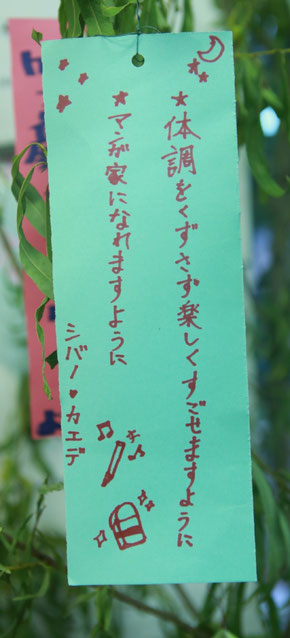 ★体調をくずさず楽しくすごせますように
★マンが家になれますように
シバノ♥カエデ